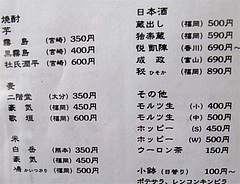 焼酎
芋
霧島 (宮崎) 350円
黒霧島 (宮崎) 400円
杜氏潤平 (宮崎) 600円
麦
二階堂 (大分) 350円
豪気 (福岡) 450円
歌垣 (福岡) 600円
米
白岳 (熊本) 350円
鳰かいつぶり (福岡) 500円
日本酒
蔵出し (福岡) 500円
独楽蔵 (福岡) 590円
悦凱陣 (香川) 690円~
成政 (富山) 690円
ひそか (福岡) 890円
その他
モルツ生 (小) 400円
モルツ生 (中) 500円
ホッピー (S) 400円
ホッピー (W) 500円
ウーロン茶 150円
小鉢 (日替り) 100円~
ポテサラ、レンコンキンピラ